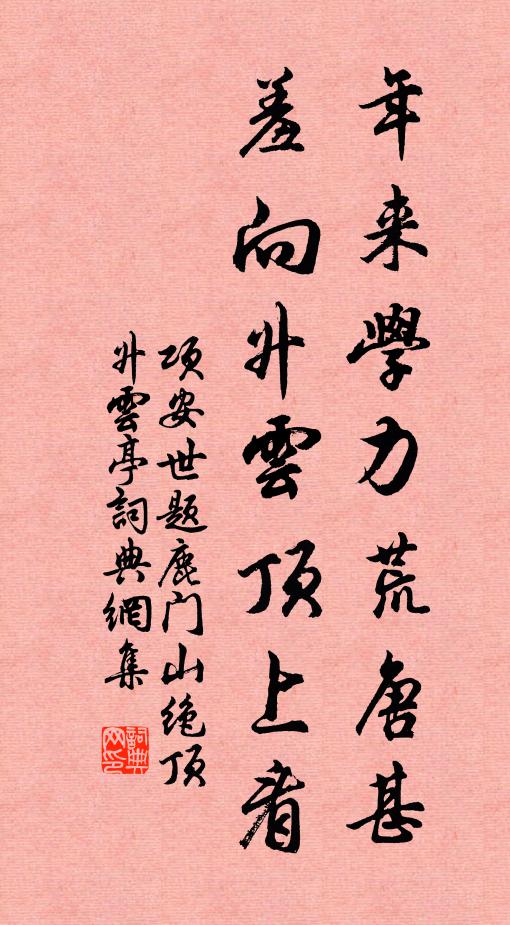 年来學力荒唐甚
羞向升雲頂上看
项安世题鹿门山绝顶
升雲亭詞典網集
詞典网印